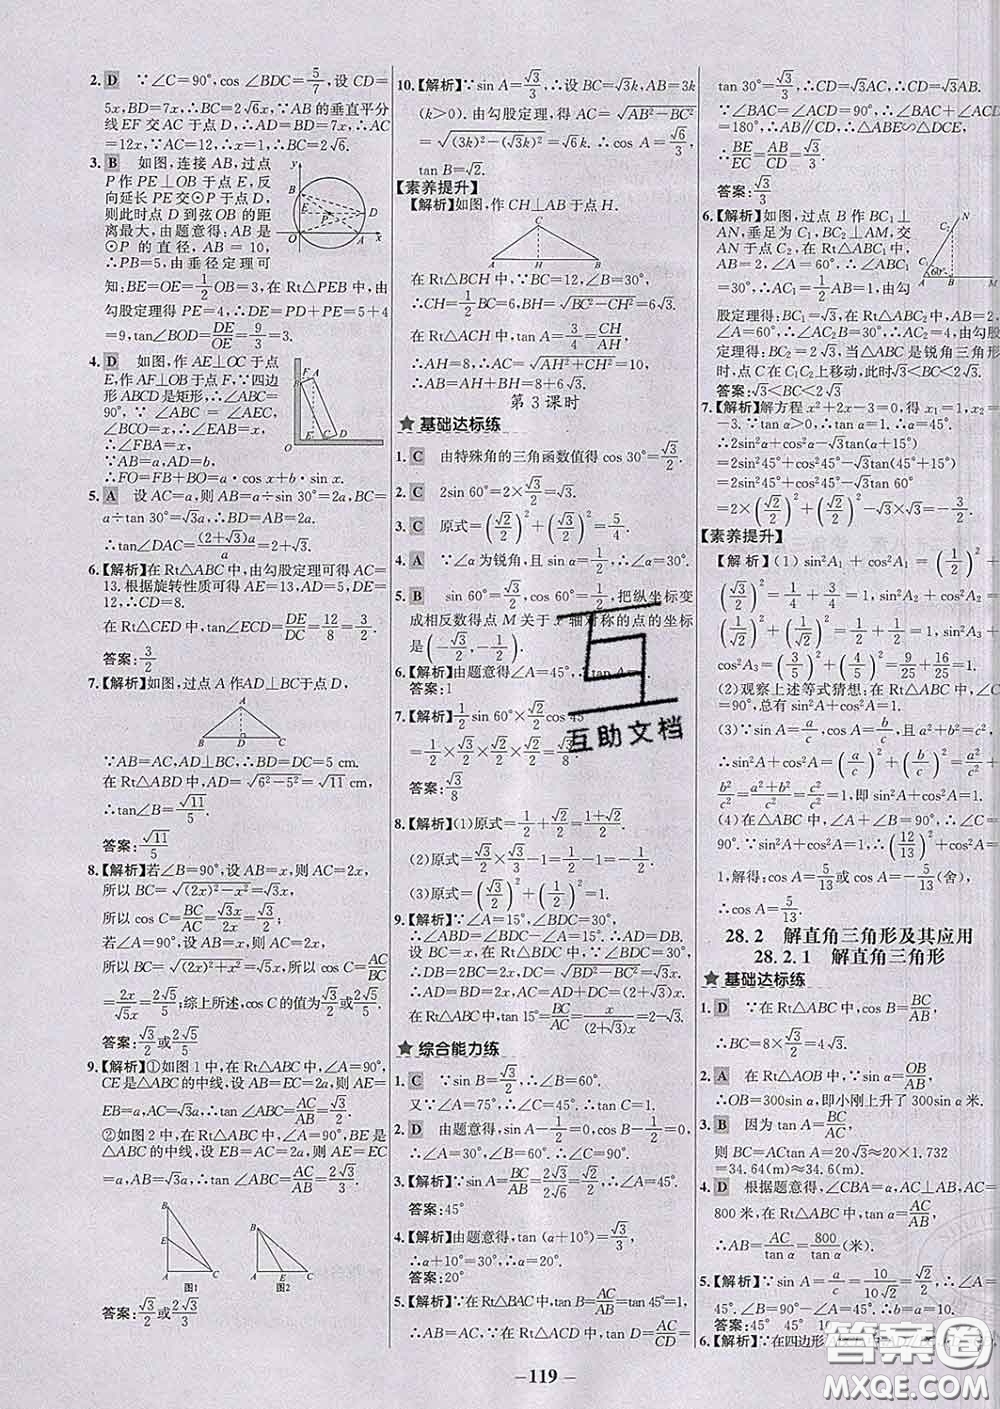 2. D ∵∠C=90°,cos ∠BDC=5/7,设 CD=
5x,BD=7x,∴BC=2√6x,∵AB的垂直平分
线EF交AC于点D,∴AD=BD=7x,∴AC=
12x,∵AC=12,∴x=1,∴BC=2√6.
3. B 如图,连接AB,过点
P作PE⊥OB于点E,反
向延长PE交⊙P于点D,
则此时点D到弦OB的距
离最大,由题意得:AB是
⊙P的直径,AB=10,
∴PB=5,由垂径定理可
知:BE=OE=1/2OB=3,在Rt△PEB中,由
勾股定理得PE=4,∴DE=PD+PE=5+4
=9,tan∠BOD=DE/OE=9/3=3.
4. D 如图,作AE⊥OC于点
E,作AF⊥OB于点F,∵四边
形ABCD是矩形,∴∠ABC=
90°,∵∠ABC=∠AEC,
∠BCO=x,∴∠EAB=x,
∴∠FBA=x,
∵AB=a,AD=b,
∴FO=FB+BO=a·cos x+b·sin x.
5. A 设AC=a,则AB=a÷sin 30°=2a,BC=
a÷tan 30°=√3a,∴BD=AB=2a.
∴tan∠DAC=(2+√3)a/a=2+√3.
6.【解析】在Rt△ABC中,由勾股定理可得AC=
13.根据旋转性质可得AE=13,AD=5,DE=
12,∴CD=8.
在Rt△CED中,tan∠ECD=DE/DC=12/8=3/2.
答案:3/2
7.【解析】如图,过点A作AD⊥BC于点D,
∵AB=AC,AD⊥BC,∴BD=DC=5 cm.
在Rt△ABD中,AD=√(6²-5²)=√11 cm,
∴tan∠B=√11/5.
答案:√11/5
8.【解析】若∠B=90°,设AB=x,则AC=2x,
所以BC=√((2x)²-x²)=√3x,
所以cos C=BC/AC=√3x/2x=√3/2;
若∠A=90°,设AB=x,则AC=2x,
所以BC=√((2x)²+x²)=√5x,所以cos C=AC/BC=
2x/√5x=2√5/5;综上所述,cos C的值为√3/2或2√5/5.
答案:√3/2或2√5/5
9.【解析】①如图1中,在Rt△ABC中,∠A=90°,
CE是△ABC的中线,设AB=EC=2a,则AE=
EB=a,AC=√3a,∴tan ∠ABC=AC/AB=√3/2.
②如图2中,在Rt△ABC中,∠A=90°,BE是
△ABC的中线,设EB=AC=2a,则AE=EC
=a,AB=√3a,∴tan ∠ABC=AC/AB=2√3/3.
图1 图2
答案:√3/2或2√3/3
10.【解析】∵sin A=√3/3,∴设BC=√3k,AB=3k
(k>0).由勾股定理,得AC=√(AB²-BC²)
=√((3k)²-(√3k)²)=√6k.∴cos A=√6/3,
tan B=√2.
【素养提升】
【解析】如图,作CH⊥AB于点H.
在Rt△BCH中,∵BC=12,∠B=30°,
∴CH=1/2BC=6,BH=√(BC²-CH²)=6√3.
在Rt△ACH中,tan A=3/4=CH/AH,
∴AH=8,∴AC=√(AH²+CH²)=10.
∴AB=AH+BH=8+6√3.
第3课时
★基础达标练
1. C 由特殊角的三角函数值得cos 30°=√3/2.
2. C 2sin 60°=2×√3/2=√3.
3. C 原式=(√2/2)²+(√3/2)²=5/4.
4. A ∵∠α为锐角,且sin α=1/2,∴∠α=30°.
5. B sin 60°=√3/2,cos 60°=1/2,把纵坐标变
成相反数得点M关于x轴对称的点的坐标
是(-√3/2,-1/2).
6.【解析】由题意得∠A=45°,∵tan A
答案:1
7.【解析】1/2sin 60°×√2/2cos 45°
=1/2×√3/2×√2/2×√2/2=√3/8.
答案:√3/8
8.【解析】(1)原式=1/2+√2/2=(1+√2)/2.
(2)原式=√3/2×√3/2-1/2-1=-3/4.
(3)原式=(√3/2)²+(1/2)²=1.
9.【解析】∵∠A=15°,∠BDC=30°,
∴∠ABD=∠BDC-∠A=15°.∴AD=DB.
设BC=x,在Rt△BDC中,∵∠BDC=30°,
∴BD=2x,DC=√3x,AC=(2+√3)x.
在Rt△ABC中,tan 15°=BC/AC=x/(2+√3)x=2-√3.
★综合能力练
1. C ∵sin B=√3/2,∴∠B=60°.
又∵∠A=75°,∴∠C=45°,∴tan C=1.
2. D 由题意得,sin A-1/2=0,cos B-1/2=0,
∴∠A=30°,∠B=60°,∴∠C=90°.
3.【解析】∵sin A=BC/AB=2√3/2√6=√2/2,∴∠A=45°.
答案:45°
4.【解析】由题意得,tan (α+10°)=√3/3,
∴α+10°=30°,∴α=20°.
答案:20°
5.【解析】∵在Rt△BAC中,tan B=AC/AB=tan 45°=1,
∴AC=AB,∵在Rt△ACD中,tan D=AC/CD=
tan 30°=√3/3,∴CD=√3AC,∴CD=√3AB.
∵∠BAC=∠ACD=90°,∴∠BAC+∠ACD
=180°,∴AB∥CD,∴△ABE∽△DCE,
∴BE/EC=AB/CD=√3/3.
答案:√3/3
6.【解析】如图,过点B作BC₁⊥
AN,垂足为C₁,BC₂⊥AM,交AN
于点C₂,在Rt△ABC₁中,AB=
2,∠A=60°,∴∠ABC₁=
30°,∴AC₁=1/2AB=1,由勾
股定理得:BC₁=√3,在Rt△ABC₂中,AB=2,
∠A=60°,∴∠AC₂B=30°,∴AC₂=4,由勾股
定理得:BC₂=2√3,当△ABC是锐角三角形
时,点C在C₁C₂上移动,此时√3<BC<2√3.
答案:√3<BC<2√3
7.【解析】解方程x²+2x-3=0,得x₁=1,x₂=
-3.∵tan α>0,∴tan α=1,∴α=45°.
∴2sin²α+cos²α-√3tan(α+15°)
=2sin²45°+cos²45°-√3tan 60°
=2×(√2/2)²+(√2/2)²-√3×√3=-3/2.
【素养提升】
【解析】(1)sin²A₁+cos²A₁=(1/2)²+
(√3/2)²=1/4+3/4=1,sin²A₂+cos²A₂=
(1/√2)²+(1/√2)²=1/2+1/2=1,sin²A₃+
cos²A₃=(3/5)²+(4/5)²=9/25+16/25=1.
(2)观察上述等式猜想:在Rt△ABC中,∠C
=90°,总有sin²A+cos²A=1.
(3)∵sin A=a/c,cos A=b/c,∴sin²A+cos²A=a²/c²+
b²/c²=(a²+b²)/c²=c²/c²=1,即sin²A+cos²A=1.
(4)在△ABC中,∠A+∠B=90°,∴∠C=
90°.∵sin²A+cos²A=1,∴(12/13)²+cos²A=
1,解得:cos A=5/13或cos A=-5/13(舍),
∴cos A=5/13.
28.2 解直角三角形及其应用
28.2.1 解直角三角形
★基础达标练
1. D ∵在Rt△ABC中,cos B=BC/AB,
∴BC=8×1/2=4.
2. A 在Rt△AOB中,∵sin α=OB/AB,
∴OB=300sin α,即小刚上升了300sin α米.
3. B 因为tan A=BC/AC,
则BC=ACtan A=20√3≈20×1.732
=34.64(m)≈34.6(m).
4. D 根据题意得,∠CBA=α,AC⊥AB,AC=
800米,在Rt△ABC中,∵tan α=AC/AB,
∴AB=AC/tan α=800/tan α(米).
5.【解析】∵sin A=a/c=10/10√2=√2/2,∴∠A=
45°.∠B=90°-∠A=45°.∴b=a=10.
答案:45° 45° 10
6.【解析】∵在四边形
— 119 —
互助文档
答案圈
MXQE.COM